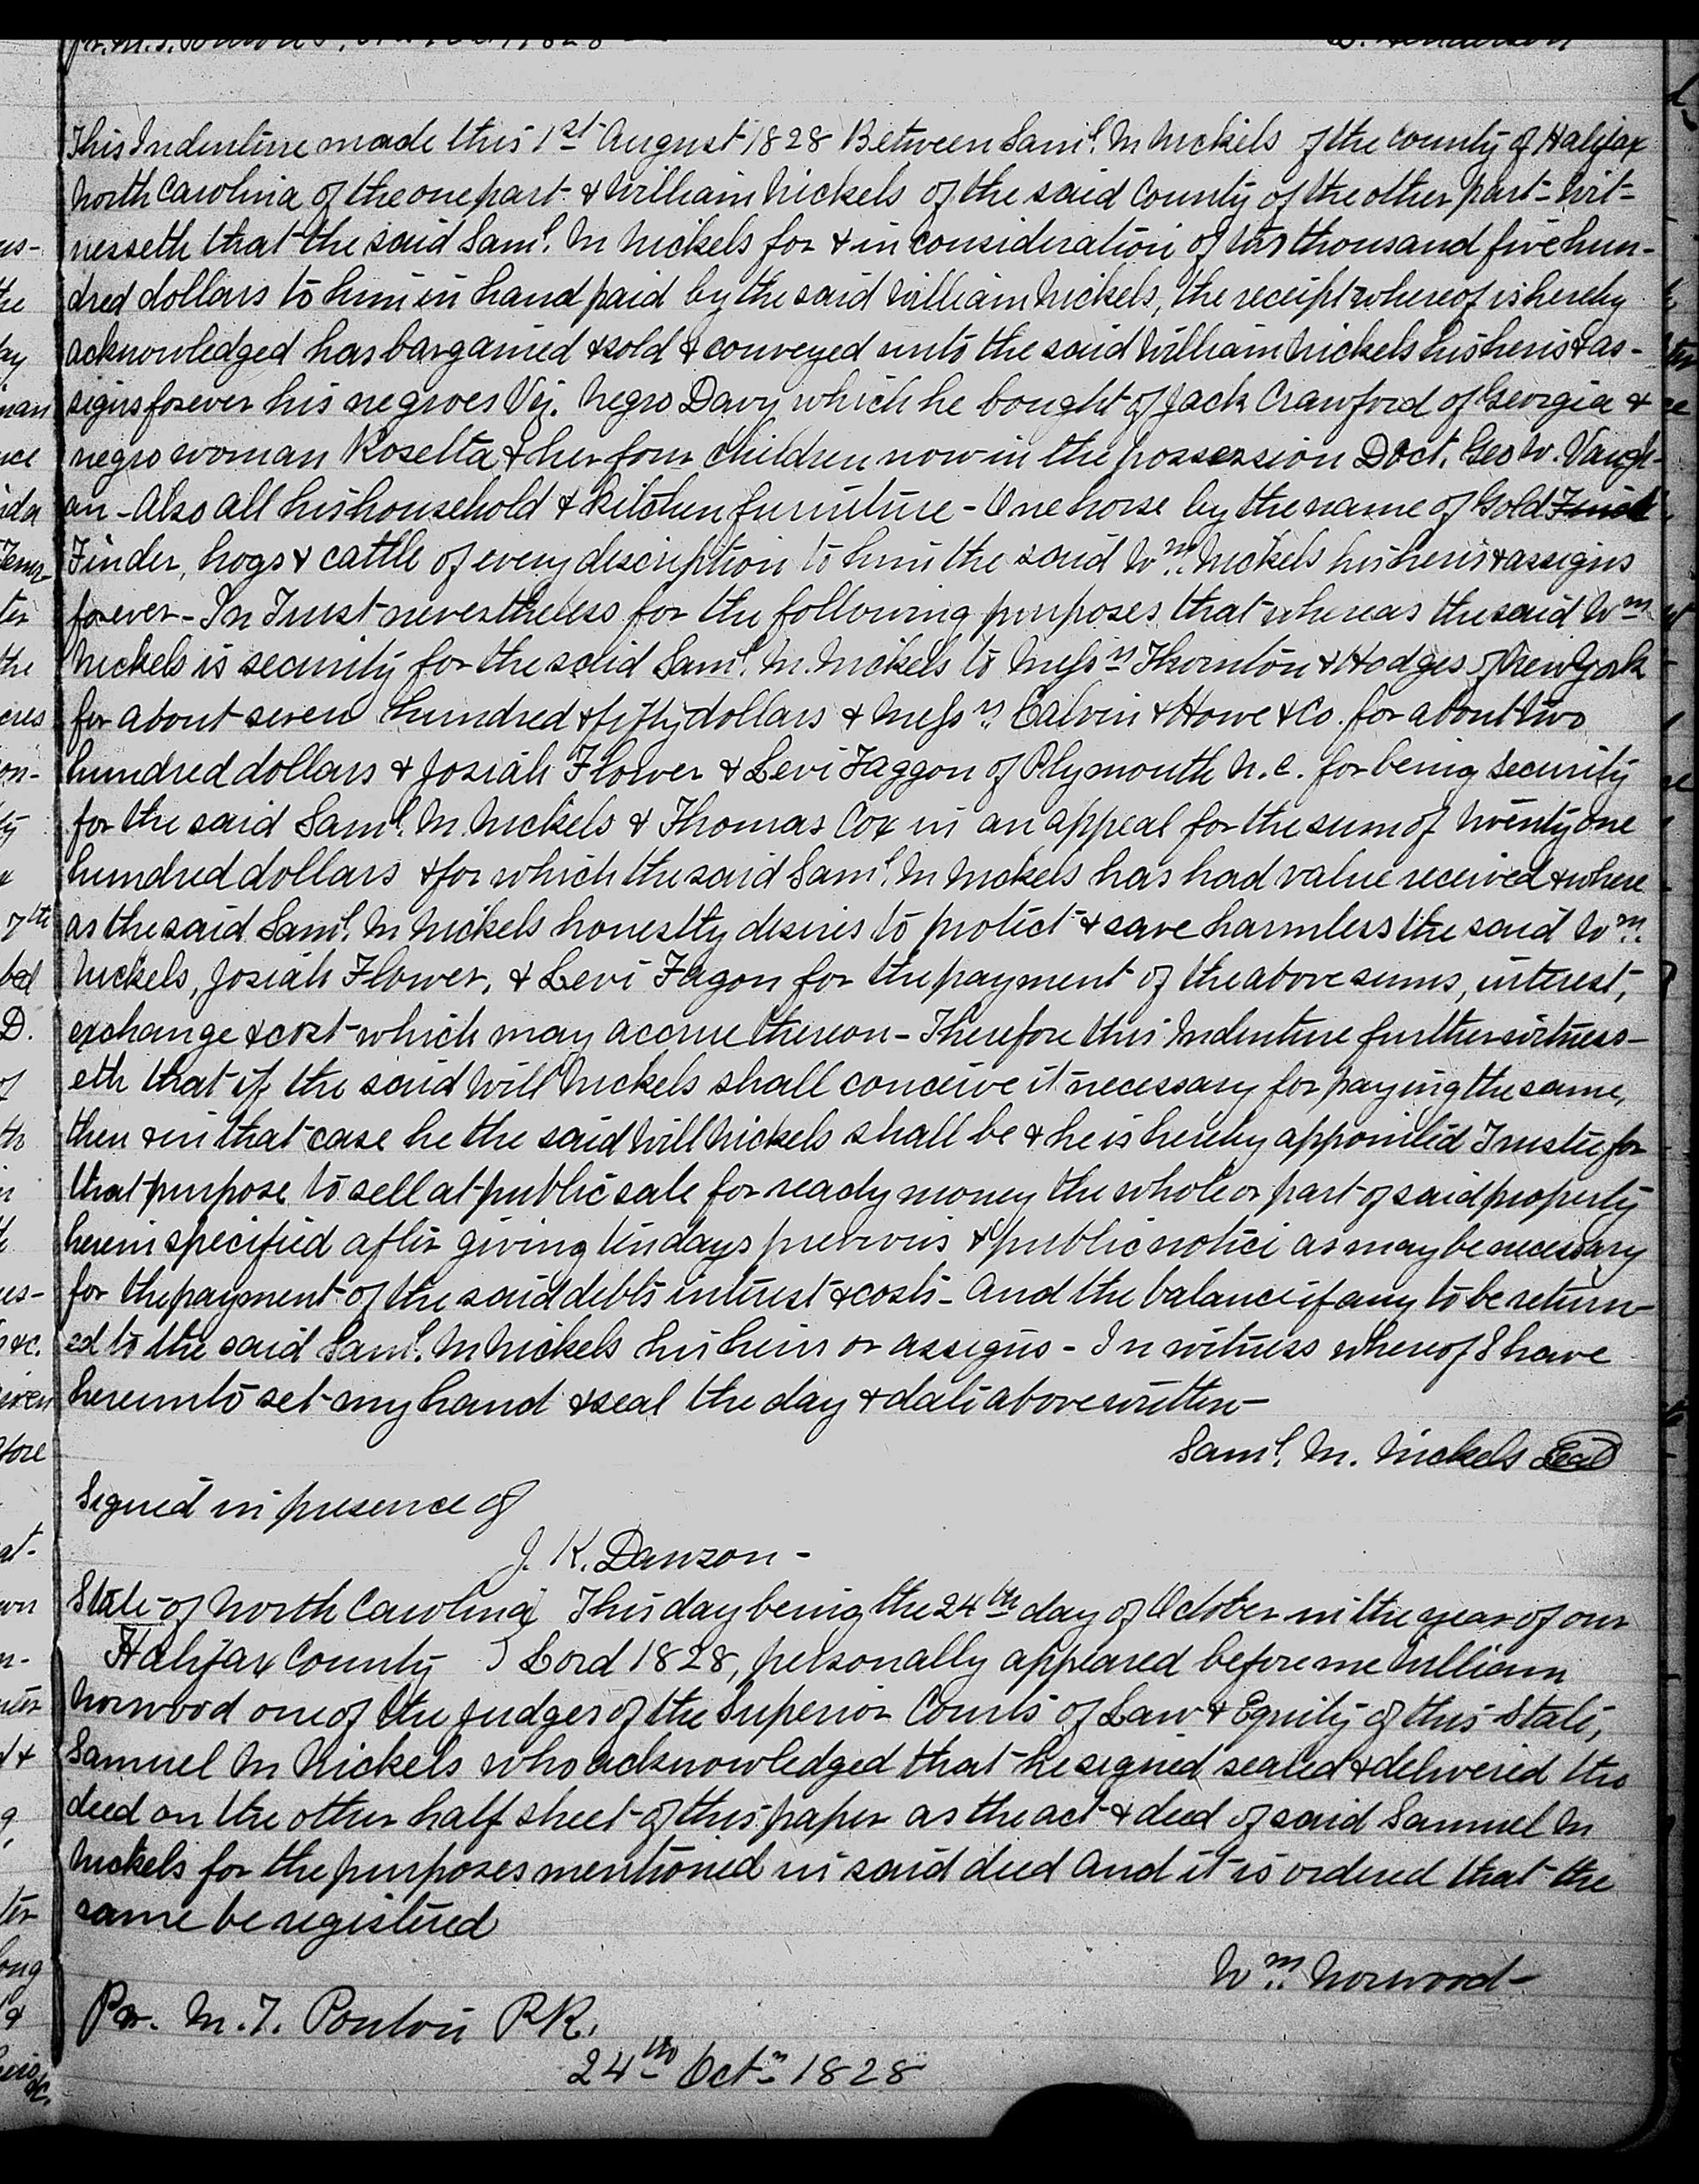 This Indenture made this 1st August 1828 Between Saml. M Nickels of the County of Halifax
North Carolina of the one part & William Nickels of the said County of the other part - Wit-
nesseth that the said Saml. M Nickels for & in consideration of two thousand five hun-
dred dollars to him in hand paid by the said William Nickels, the receipt whereof is hereby
acknowledged has bargained & sold & conveyed unto the said William Nickels his heirs & as-
signs forever his negroes Viz. Negro Davy which he bought of Jack Crawford of Georgia &
negro woman Rosetta & her four children now in the possession Doct. Geo W. Vaugh-
an - Also all his household & kitchen furniture - One horse by the name of Gold
Finder, hogs & cattle of every description to him the said Wm. Nickels his heirs & assigns
forever - In Trust nevertheless for the following purposes that whereas the said Wm
Nickels is security for the said Saml. M. Nickels to Messrs Thornton & Hodges of New York
for about seven hundred & fifty dollars & Messrs. Calvin & Howe & Co. for about two
hundred dollars & Josiah Flower & Levi Faggon of Plymouth N.C. for being security
for the said Saml. M. Nickels & Thomas Cox in an appeal for the sum of twenty one
hundred dollars & for which the said Saml. M Nickels has had value received & where
as the said Saml. M Nickels honestly desires to protect & save harmless the said Wm.
Nickels, Josiah Flower, & Levi Fagon for the payment of the above sums, interest,
exchange & cost which may accrue thereon - Therefore this Indenture further witness-
eth that if the said Will Nickels shall conceive it necessary for paying the same,
then & in that case he the said Will Nickels shall be & he is hereby appointed Trustee for
that purpose to sell at public sale for ready money the whole or part of said property
herein specified after giving ten days previous & public notice as may be necessary
for the payment of the said debts interest & costs - And the balance if any to be return-
ed to the said Saml. M Nickels his heirs or assigns - In witness whereof I have
hereunto set my hand & seal the day & date above written -
Saml. M. Nickels Seal
Signed in presence of
J. K. Dawson -
State of North Carolina } This day being the 24th day of October in the year of our
Halifax County } Lord 1828, personally appeared before me William
Norwood one of the judges of the Superior Courts of Law & Equity of this State,
Samuel M Nickels who acknowledged that he signed sealed & delivered the
deed on the other half sheet of this paper as the act & deed of said Samuel M
Nickels for the purposes mentioned in said deed And it is ordered that the
same be registered
Wm. Norwood -
Pr. M. T. Ponton P.R.
24th Octr 1828